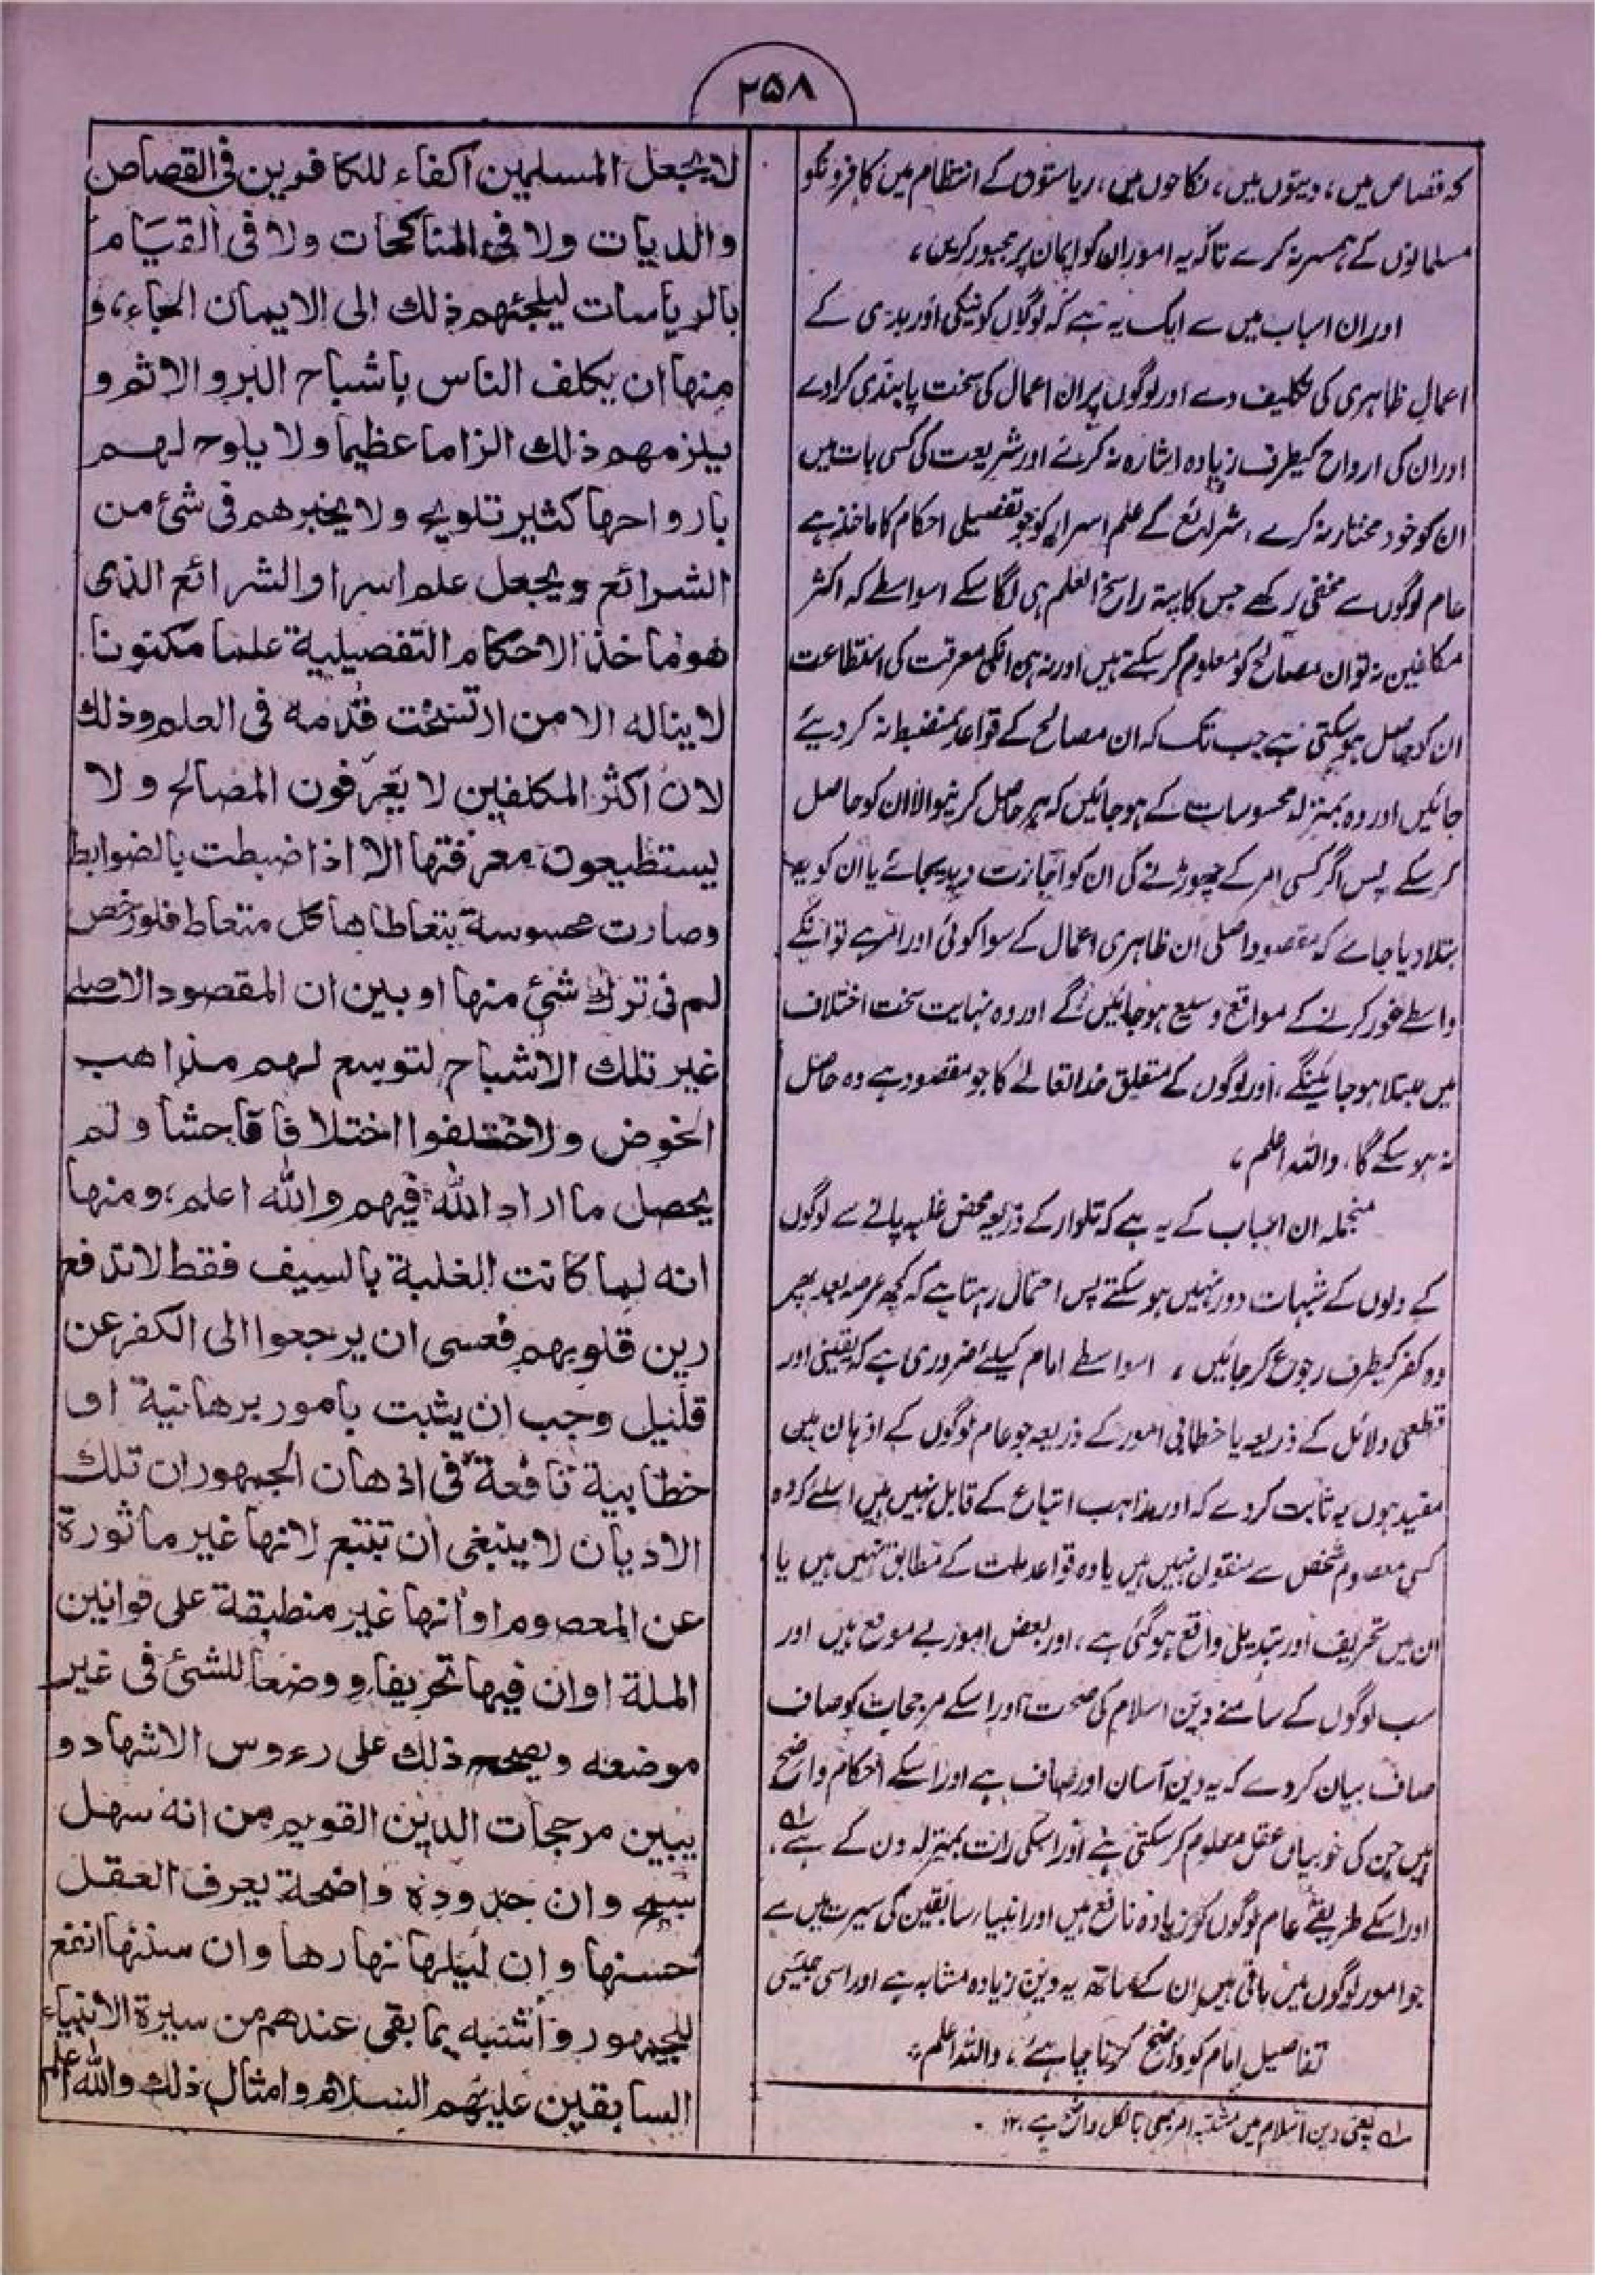 ۲۵۸
کہ قصاص میں، دیتوں میں، نکاحوں میں، ریاستوں کے انتظام میں کافرونکو
مسلمانوں کے ہمسر نہ کرے تاکہ یہ امور ان کو ایمان پر مجبور کریں،
اور ان اسباب میں سے ایک یہ ہے کہ لوگوں کو نیکی اور بدی کے
اعمال ظاہری کی تکلیف دے اور لوگوں پر ان اعمال کی سخت پابندی کرادے
اور ان کی ارواح کیطرف زیادہ اشارہ نہ کرے اور شریعت کی کسی بات میں
ان کو خود مختار نہ کرے، شرائع کے علم اسرار کو جو تفصیلی احکام کا ماخذ ہے
عام لوگوں سے مخفی رکھے جس کا پتہ راسخ العلم ہی لگا سکے اسواسطے کہ اکثر
مکلفین نہ تو ان مصالح کو معلوم کر سکتے ہیں اور نہ ہی انکی معرفت کی استطاعت
ان کو حاصل ہو سکتی ہے جب تک کہ ان مصالح کے قواعد منضبط نہ کر دیئے
جائیں اور وہ بمنزلہ محسوسات کے ہو جائیں کہ ہر حاصل کرنیوالا ان کو حاصل
کر سکے پس اگر کسی امر کے چھوڑنے کی ان کو اجازت دیدیجائے یا ان کو یہ
بتلا دیا جائے کہ مقصود اصلی ان ظاہری اعمال کے سوا کوئی اور امر ہے تو انکے
واسطے غور کرنے کے مواقع وسیع ہو جائیں گے اور وہ نہایت سخت اختلاف
میں مبتلا ہو جائینگے، اور لوگوں کے متعلق خدا تعالےٰ کا جو مقصود ہے وہ حاصل
نہ ہو سکے گا، واللہ اعلم،
منجملہ ان اسباب کے یہ ہے کہ تلوار کے ذریعہ محض غلبہ پانے سے لوگوں
کے دلوں کے شبہات دور نہیں ہو سکتے پس احتمال رہتا ہے کہ کچھ عرصہ بعد پھر
وہ کفر کیطرف رجوع کر جائیں، اسواسطے امام کیلئے ضروری ہے کہ یقینی اور
قطعی دلائل کے ذریعہ یا خطابی امور کے ذریعہ جو عام لوگوں کے اذہان میں
مفید ہوں یہ ثابت کردے کہ اور مذاہب اتباع کے قابل نہیں ہیں اسلئے کہ وہ
کسی معصوم شخص سے منقول نہیں ہیں یا وہ قواعد ملت کے مطابق نہیں ہیں یا
ان میں تحریف اور تبدیلی واقع ہو گئی ہے، اور بعض امور بے موقع ہیں اور
سب لوگوں کے سامنے دین اسلام کی صحت اور اسکے مرجحات کو صاف
صاف بیان کر دے کہ یہ دین آسان اور صاف ہے اور اسکے احکام واضح
ہیں جن کی خوبیاں عقل معلوم کر سکتی ہے اور اسکی رات بمنزلہ دن کے ہے ۱؎،
اور اسکے طریقے عام لوگوں کو زیادہ نافع ہیں اور انبیاء سابقین کی سیرت میں سے
جو امور لوگوں میں باقی ہیں ان کے ساتھ یہ دین زیادہ مشابہ ہے اور اسی جیسی
تفاصیل امام کو واضح کرنا چاہئے، واللہ اعلم،
۱؎ یعنی دین اسلام میں مشتبہ امر بھی بالکل واضح ہے ۱۲۔
لا یجعل المسلمین اکفاء للکافرین فی القصاص
والدیات ولا فی المناکحات ولا فی القیام
بالریاسات لیلجئهم ذلك الی الایمان الجاء، و
منها ان یکلف الناس باشباح البر والاثم و
یلزمهم ذلك الزاما عظیما ولا یلوح لهم
بارواحها کثیر تلویح ولا یخیرهم فی شئ من
الشرائع ویجعل علم اسرار الشرائع الذی
هو ماخذ الاحکام التفصیلیة علما مکنونا
لا یناله الا من ارتسخت قدمه فی العلم وذلك
لان اکثر المکلفین لا یعرفون المصالح ولا
یستطیعون معرفتها الا اذا ضبطت بالضوابط
وصارت محسوسة یتعاطاها کل متعاط فلو رخص
لهم فی ترك شئ منها او بین ان المقصود الاصلی
غیر تلك الاشباح لتوسع لهم مذاهب
الخوض ولاختلفوا اختلافا فاحشا ولم
یحصل ما اراد الله فیهم والله اعلم، ومنها
انه لما کانت الغلبة بالسیف فقط لا تدفع
رین قلوبهم فعسی ان یرجعوا الی الکفر عن
قلیل وجب ان یثبت بامور برهانیة او
خطابیة نافعة فی اذهان الجمهور ان تلك
الادیان لا ینبغی ان تتبع لانها غیر ماثورة
عن المعصوم او انها غیر منطبقة علی قوانین
الملة او ان فیها تحریفا ووضعا للشئ فی غیر
موضعه ویصحح ذلك علی رءوس الاشهاد و
یبین مرجحات الدین القویم من انه سهل
سمح وان حدوده واضحة یعرف العقل
حسنها وان لیلها نهارها وان سننها انفع
للجمهور واشبه بما بقی عندهم من سیرة الانبیاء
السابقین علیهم السلام وامثال ذلك والله اعلم